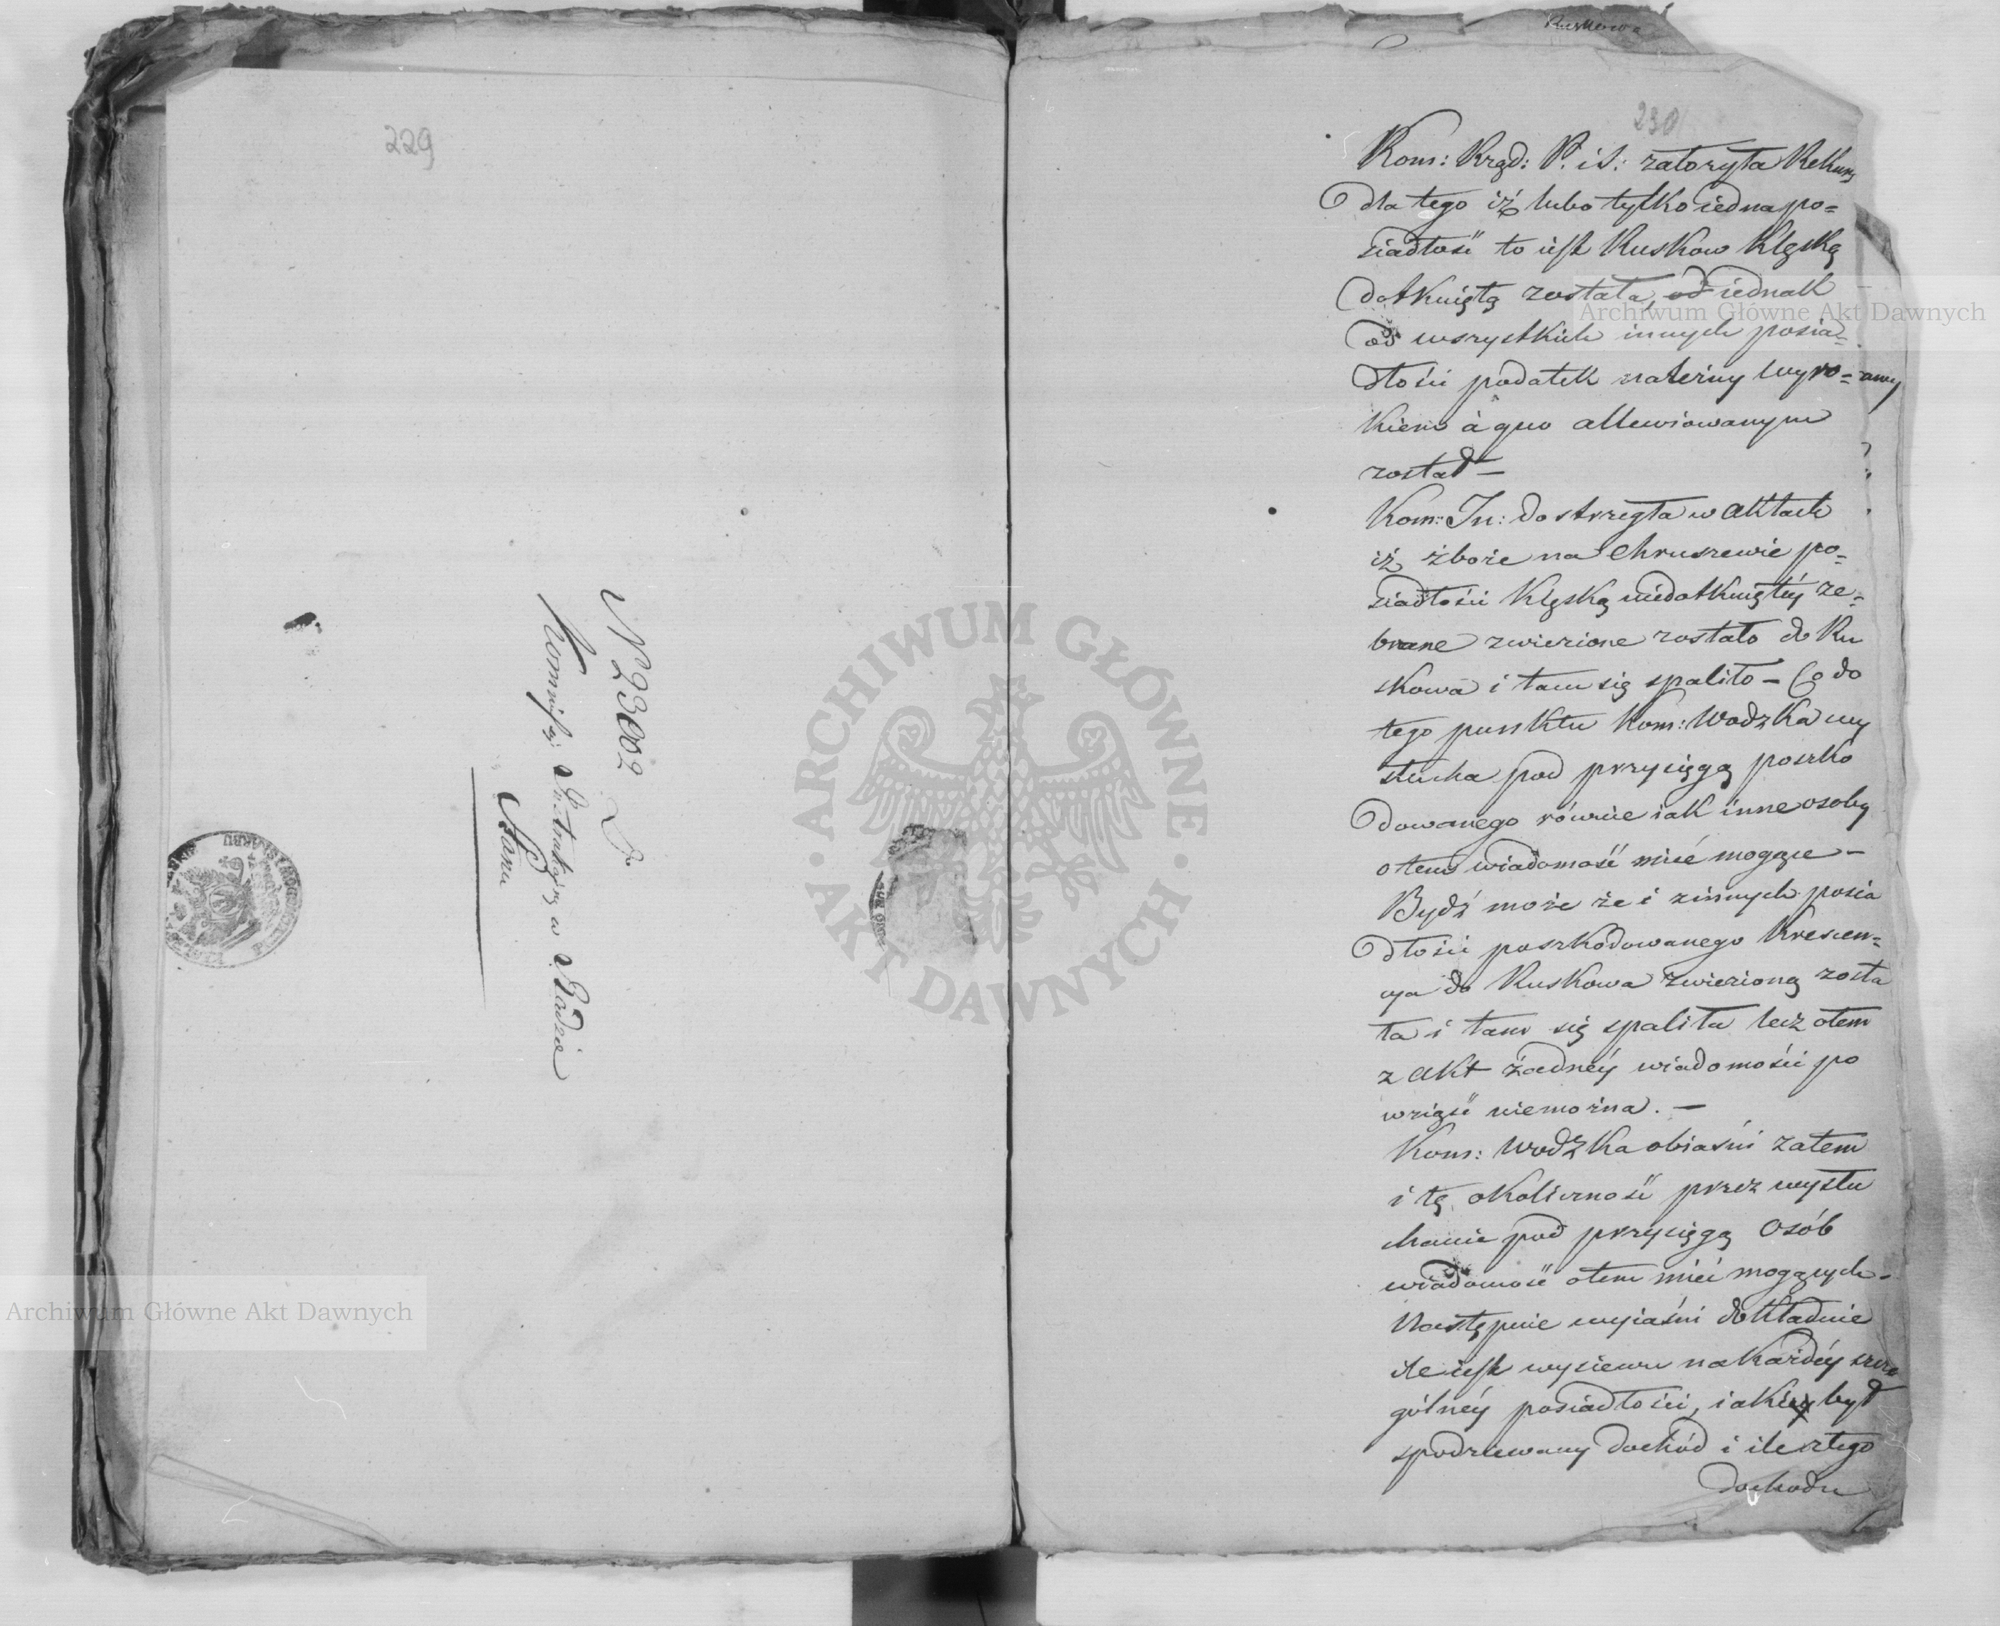 229
N 23002
Kommissyi Instrukcyjney w Radzie
Stanu
230
Kom: Rząd: P. i S: założyła Rekurs
dla tego iż lubo tylko iedna po=
siadłość to iest Ruskow klęską
dotkniętą została, od iednak
od wszystkich innych posia=
dłości podatek należny wyro=
kiem à quo allewiowanym
został —
Kom: In: dostrzegła w aktach
iż zboże na Chruszewie po=
siadłości klęską niedotkniętéy ze=
brane zwiezione zostało do Ru
skowa i tam się spaliło — Co do
tego punktu Kom: Wodzka wy
słucha pod przysięgą poszko
dowanego równie iak inne osoby
o tem wiadomość mieć mogące —
Bydź może że i z innych posia
dłości poszkodowanego krescen=
cya do Ruskowa zwiezioną zosta
ła i tam się spaliła lecz o tem
z akt żadnéy wiadomości po
wziąść niemożna. —
Kom: Wodzka obiaśni zatem
i tę okoliczność przez wysłu
chanie pod przysięgą osób
wiadomość o tem mieć mogących —
Następnie wyiaśni dokładnie
ile iest wysiewu na każdéy szcze
gólnéy posiadłości, iaki był
spodziewany dochód i ile z tego
dochodu
Archiwum Główne Akt Dawnych
Archiwum Główne Akt Dawnych
ARCHIWUM GŁÓWNE
AKT DAWNYCH